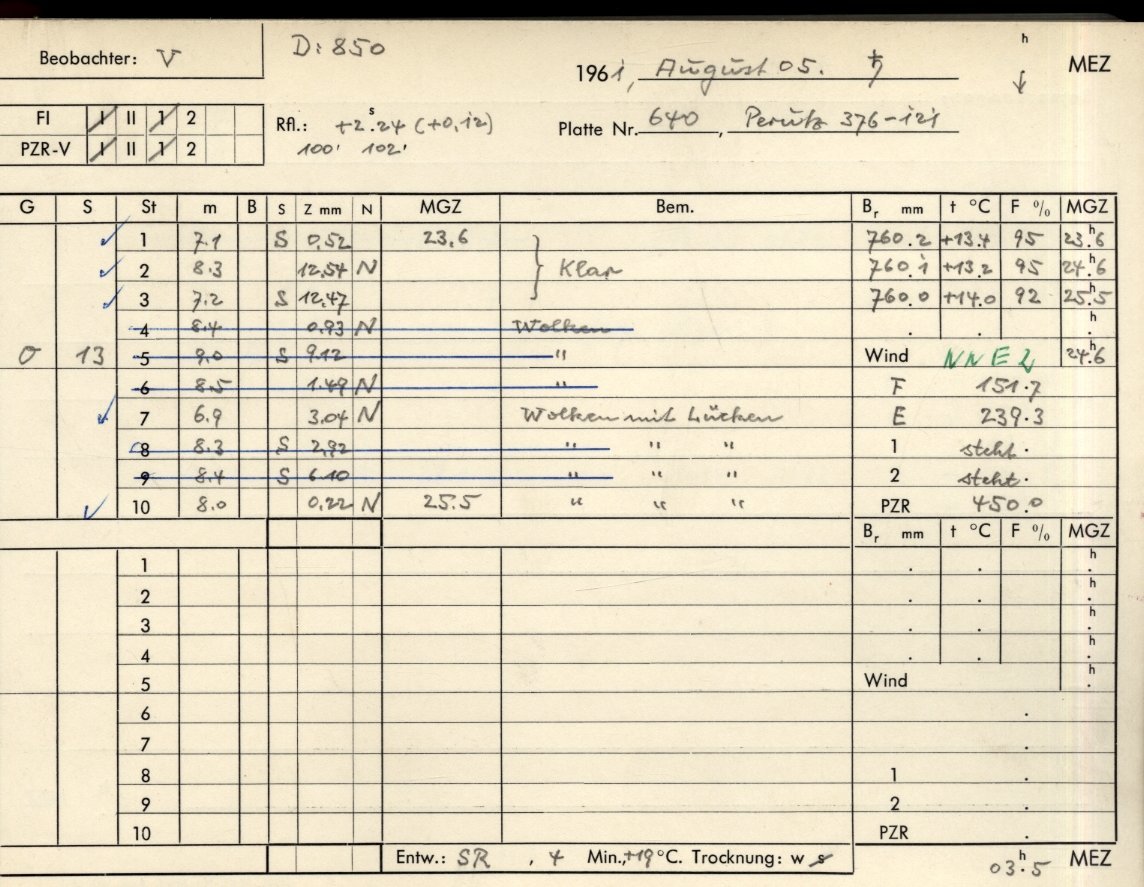 Beobachter: V
D: 850
1961, August 05. ♄
h
MEZ
FI I II 1 2
PZR-V I II 1 2
Rfl.: +2.ˢ24 (+0,12)
100' 102'
Platte Nr. 640, Perutz 376-121
G S St m B S Z mm N MGZ Bem. Bᵣ mm t °C F % MGZ
1 7.1 S 0,52 23,6 760.2 +13.4 95 23.ʰ6
2 8.3 12,54 N Klar 760.1 +13.2 95 24.ʰ6
3 7.2 S 12,47 760.0 +14.0 92 25.ʰ5
4 8.4 0.93 N Wolken . . h .
O 13 5 9.0 S 9.12 " Wind NNE 2 24.ʰ6
6 8.5 1.49 N " F 151.7
7 6.9 3.04 N Wolken mit Lücken E 239.3
8 8.3 S 2,92 " " " 1 steht.
9 8.4 S 6.10 " " " 2 steht.
10 8.0 0,22 N 25.5 " " " PZR 450.0
Bᵣ mm t °C F % MGZ
1 . . h .
2 . . h .
3 . . h .
4 . . h .
5 Wind h .
6 .
7 .
8 1 .
9 2 .
10 PZR .
Entw.: SR , 4 Min.,+19°C. Trocknung: w s
03.ʰ5 MEZ